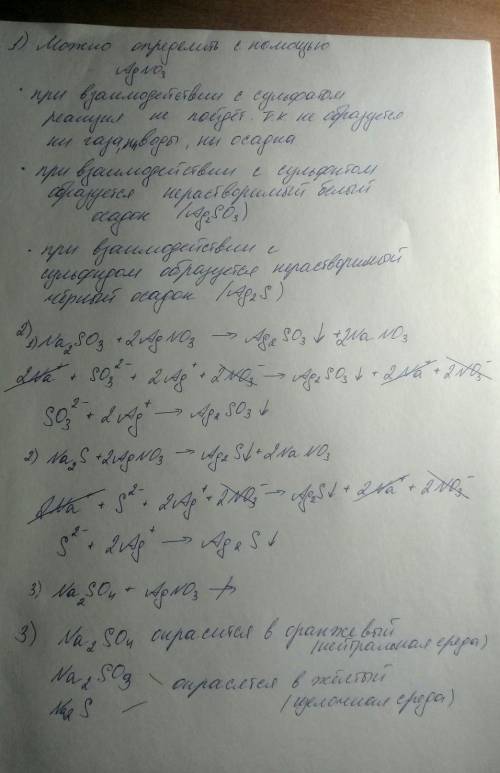 1) Можно определить с помощью
AgNO3
· при взаимодействии с сульфатом
реакция не пойдёт т.к не образуется
ни газа, ни воды, ни осадка
· при взаимодействии с сульфитом
образуется нерастворимый белый
осадок (Ag2SO3)
· при взаимодействии с
сульфидом образуется нерастворимый
чёрный осадок (Ag2S)
2)
1) Na2SO3 + 2AgNO3 → Ag2SO3↓ + 2NaNO3
2Na⁺ + SO3²⁻ + 2Ag⁺ + 2NO3⁻ → Ag2SO3↓ + 2Na⁺ + 2NO3⁻
SO3²⁻ + 2Ag⁺ → Ag2SO3↓
2) Na2S + 2AgNO3 → Ag2S↓ + 2NaNO3
2Na⁺ + S²⁻ + 2Ag⁺ + 2NO3⁻ → Ag2S↓ + 2Na⁺ + 2NO3⁻
S²⁻ + 2Ag⁺ → Ag2S↓
3) Na2SO4 + AgNO3 ↛
3) Na2SO4 окрасится в оранжевый
(нейтральная среда)
Na2SO3 \ окрасятся в жёлтый
Na2S / (щелочная среда)